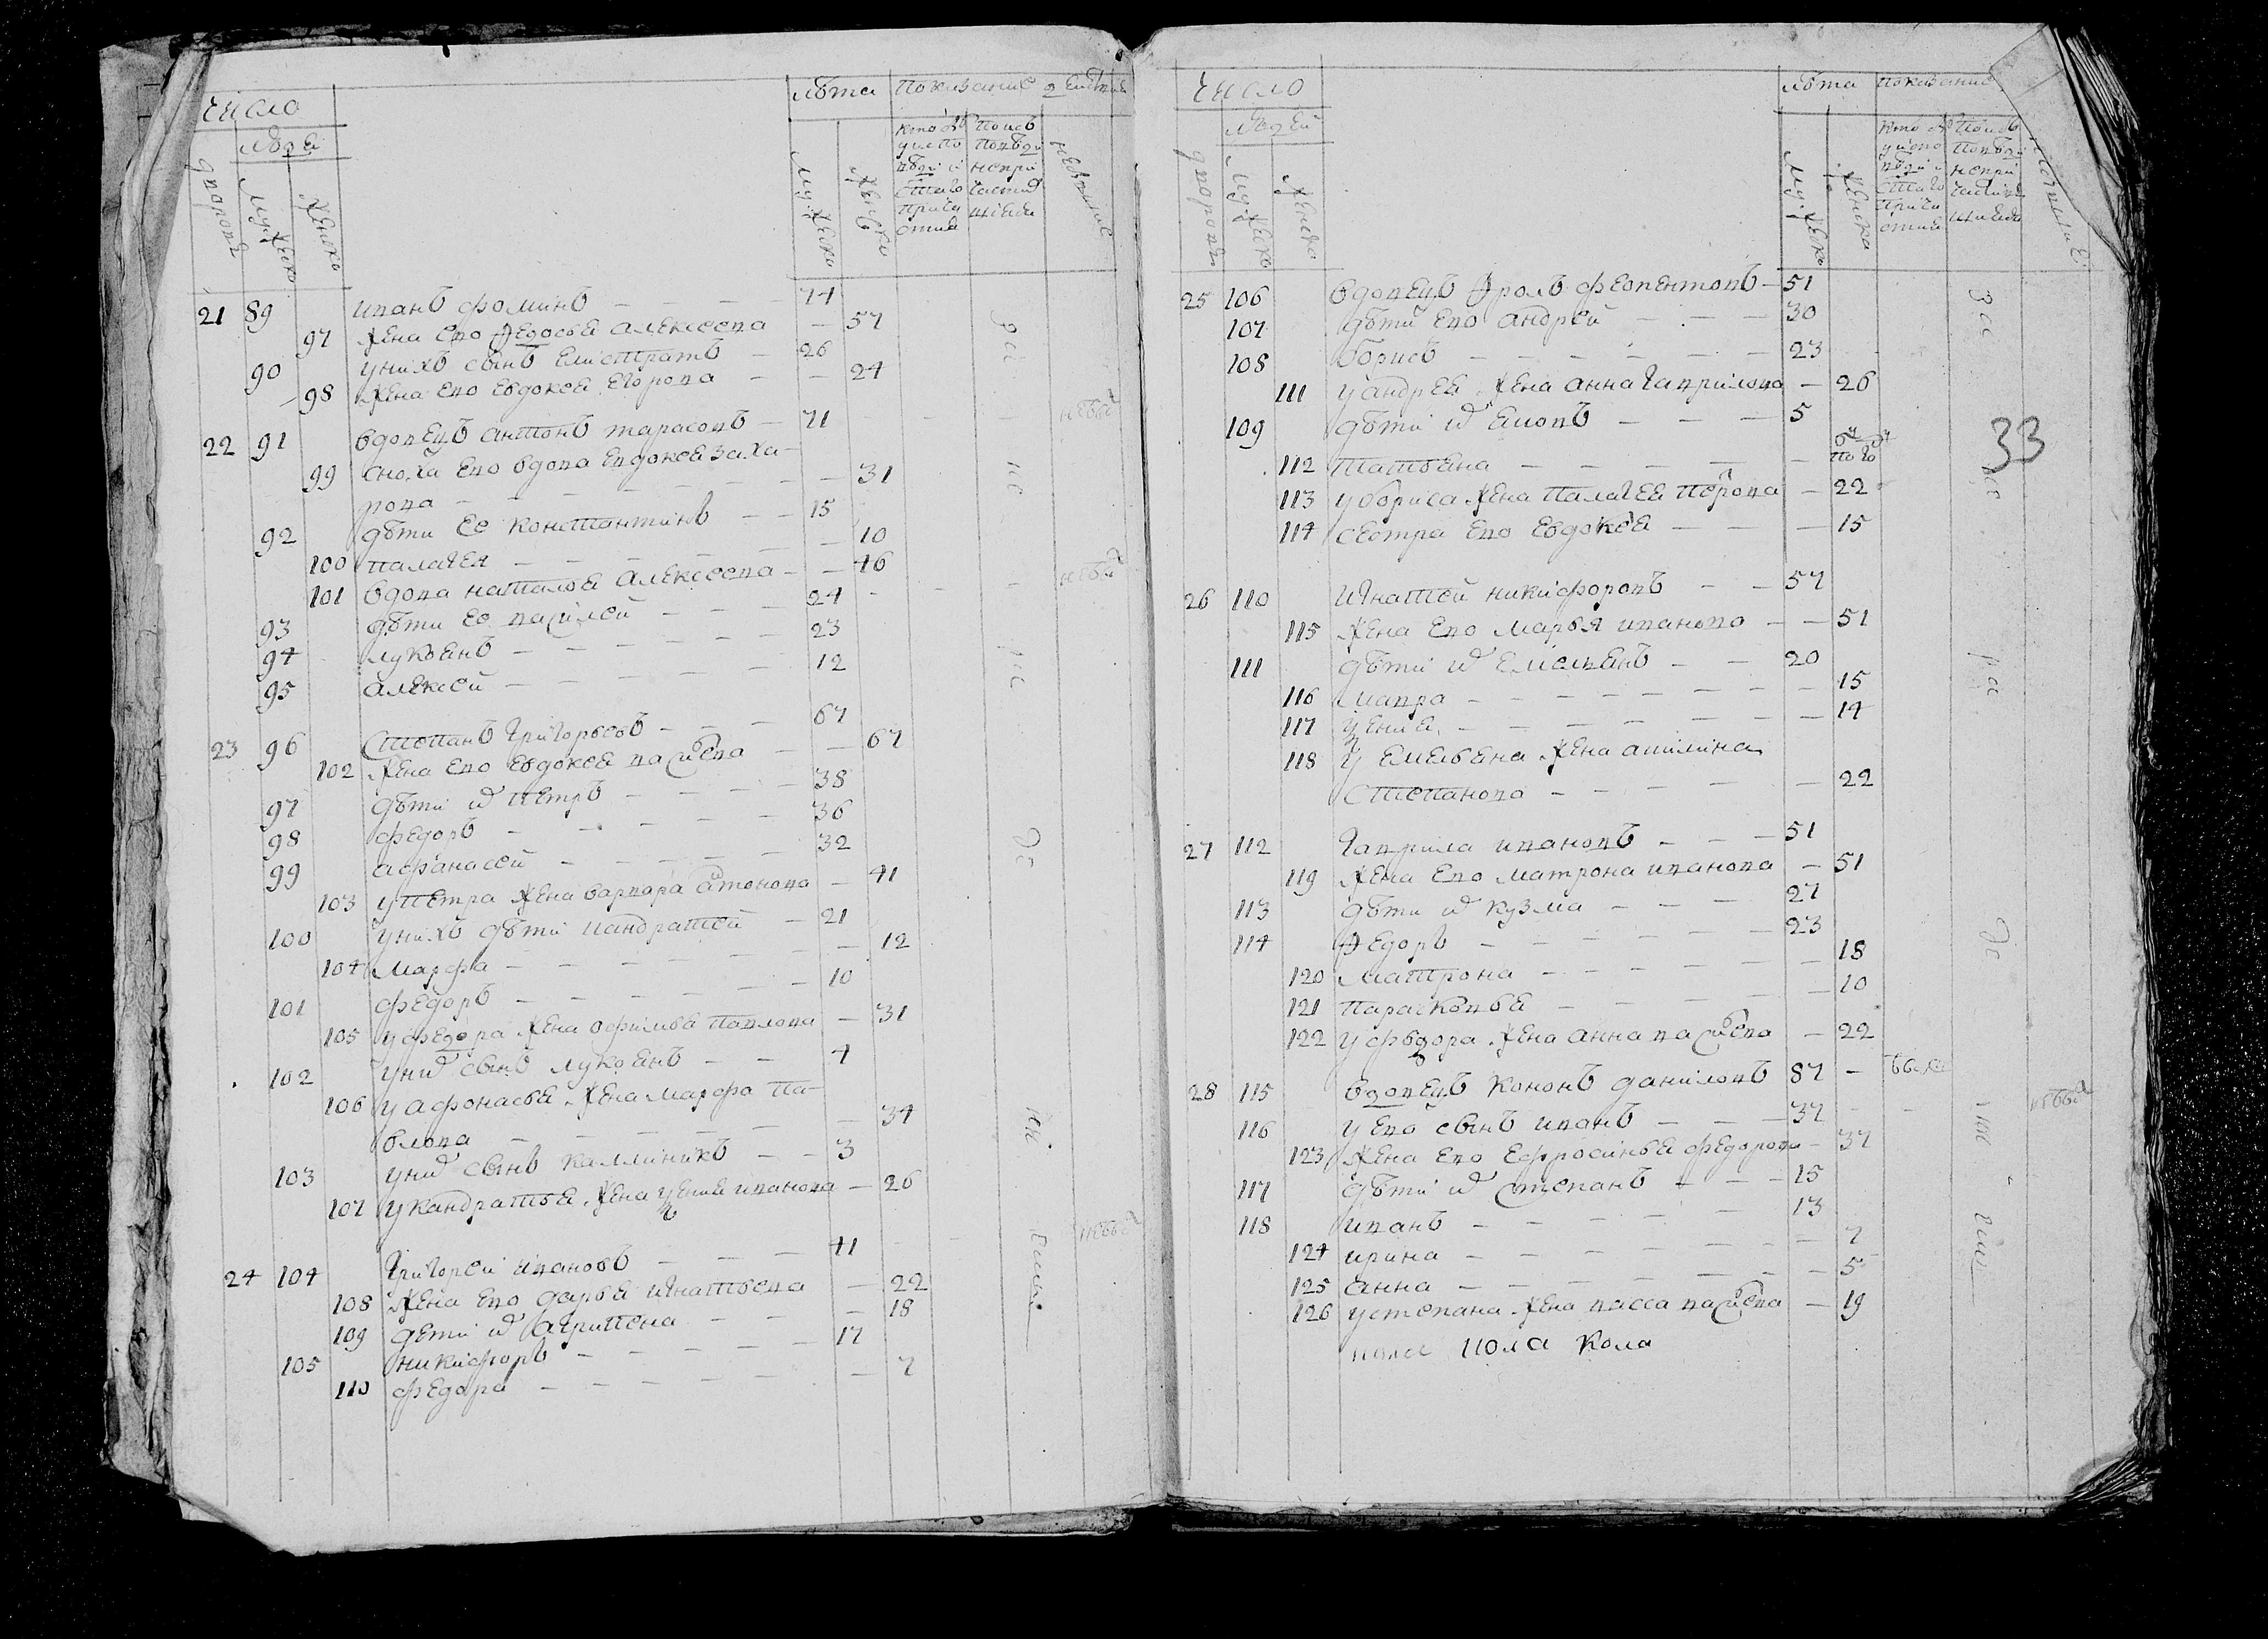 число
людей
дворовъ
мужеска
женска
лѣта
показание действ
муже ска
женско
кто объ у испо вѣди с стаго прича стия
по исъ повѣди непри частив шиеся
небывшие
21 89 иванъ фоминъ — 74
97 жена ево федосья алексеева — 57
90 у нихъ сынъ елистратъ — 26
98 жена ево евдокея егорова — 24
22 91 вдовецъ антонъ тарасовъ — 71
99 сноха ево вдова евдокея заха
рова — 31
92 дѣти ее константинъ — 15
100 палагея — 10
101 вдова наталья алексеева — 46
93 дѣти ее василей — 24
94 лукьянъ — 23
95 алексей — 12
23 96 степанъ григорьевъ — 67
102 жена ево евдокея васиева — 67
97 дѣти их петръ — 38
98 федоръ — 36
99 афанасей — 32
103 у петра жена варвара антонова — 41
100 у нихъ дѣти кандратей — 21
104 марфа — 12
101 федоръ — 10
105 у федора жена офимья павлова — 31
102 у них сынъ лукьянъ — 4
106 у афонасья жена марфа па
влова — 34
103 у них сынъ каллиникъ — 3
107 у кандратья жена ксения иванова — 26
24 104 григорей ивановъ — 41
108 жена ево дарья игнатьева — 22
109 дети их агрипена — 18
105 никифоръ — 17
110 федора — 7
число
людей
дворовъ
мужеска
женска
лѣта
показание
муже ска
женска
кто объ у испо вѣди с стаго прича стия
по исъ повѣди непри частив шиеся
33
25 106 вдовецъ фролъ феопентовъ — 51
107 дѣти ево андрей — 30
108 борисъ — 23
111 у андрея жена анна гаврилова — 26
109 дѣти их — 5
112 татьяна — по го
113 у бориса жена палагея петрова — 22
114 сестра ево евдокея — 15
26 110 игнатей никифоровъ — 57
115 жена ево марья иванова — 51
111 дѣти их емельянъ — 20
116 мавра — 15
117 ксения — 14
118 у емельяна жена акилина
степанова — 22
27 112 гаврила ивановъ — 51
119 жена ево матрона иванова — 51
113 дѣти их кузма — 27
114 федоръ — 23
120 матрона — 18
121 парасковья — 10
122 у федора жена анна васиева — 22
28 115 вдовецъ кононъ даниловъ 87
116 у ево сынъ иванъ — 37
123 жена ево ефросинья федорова — 37
117 дѣти их степанъ — 15
118 иванъ — 13
124 ирина — 7
125 анна — 5
126 у степана жена васса васиева — 19